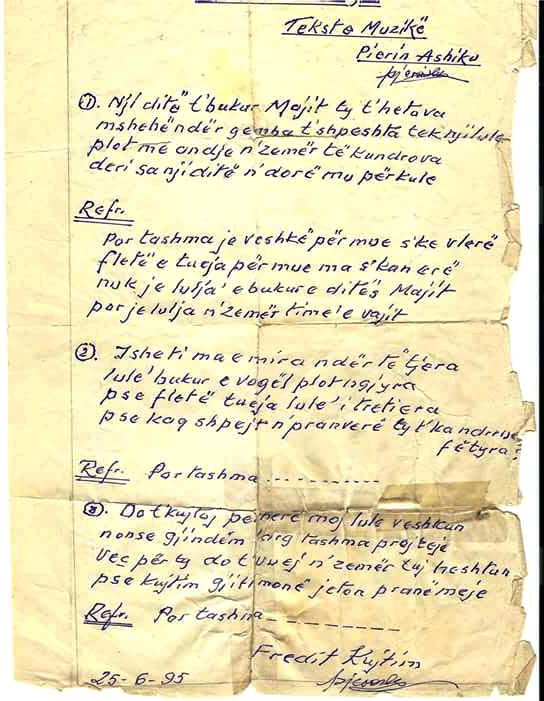 Teksti e Muzikë
Pierin Ashiku
①. Nji ditë t'bukur Majit ty t'hetova
mshehë ndër gemba t'shpeshta tek nji lule
plot me andje n'zemër të kundrova
deri sa nji ditë n'dorë mu përkule
Refr.
Por tashma je veshkë për mue s'ke vlerë
fletë e tueja për mue ma s'kan erë
nuk je lulja e bukur e ditës Majit
por je lulja n'zemër time e vajit
②. Ishe ti ma e mira ndër të tjera
lulë bukur e vogël plot ngjyra
pse fletë tueja lulë i treti era
pse kaq shpejt n'pranverë ty t'kandrrue
fëtyra?
Refr. Por tashma ----------
③. Do t kujtoj përherë moj lule veshkun
nonse gjindëm larg tashma prej teje
Veç për ty do t'vuej n'zemër tuj heshtun
pse kujtim gjithmonë jeton pranë meje
Refr. Por tashma ----------
Fredit Kujtim
25-6-95